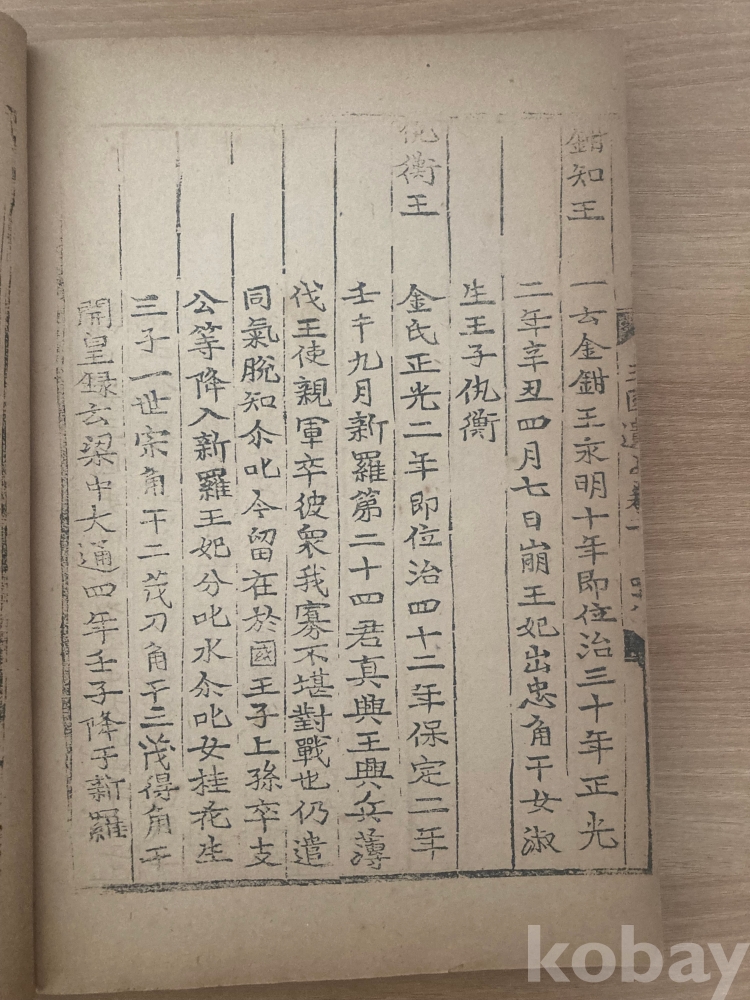 鉗知王
一云金鉗王永明十年即位治三十年正光
二年辛丑四月七日崩王妃出忠角干女淑
生王子仇衡
仇衡王
金氏正光二年即位治四十二年保定二年
壬午九月新羅第二十四君真興王興兵薄
伐王使親軍卒彼衆我寡不堪對戰也仍遣
同氣脫知尒叱今留在於國王子上孫卒支
公等降入新羅王妃分叱水尒叱女桂花生
三子一世宗角干二茂刀角干三茂得角干
開皇録云梁中大通四年壬子降于新羅
三國遺 卷
kobay